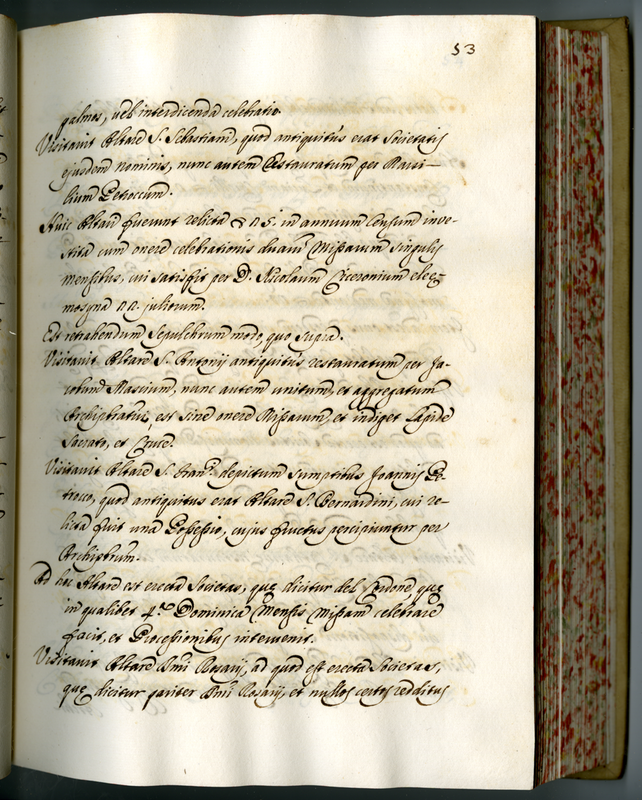 53
palmos, vel interdicenda celebratio.
Visitavit Altare S. Sebastiani, quod antiquitus erat Societatis
ejusdem nominis, nunc autem restauratum per Marsi-
lium Petroccum.
Huic Altari fuerunt relicta in annuum Censum inve-
stita cum onere celebrationis duarum Missarum singulis
mensibus, cui satisfit per D. Nicolaum Ciceronium elee-
mosyna juliorum.
Est retrahendum Sepulchrum modo, quo supra.
Visitavit Altare S. Antonij antiquitus restauratum per Ja-
cobum Mascium, nunc autem unitum, et aggregatum
Archipbratui, est sine onere Missarum, et indiget Lapide
Sacrato, et Cruce.
Visitavit Altare S. Fran.ci depictum sumptibus Joannis Pe-
trocco, quod antiquitus erat Altare S. Bernardini, cui re-
licta fuit una Possessio, cujus fructus percipiuntur per
Archipbrum.
Ad hoc Altare est erecta Societas, quę dicitur del Cordone, quę
in qualibet p.ma Dominica Mensis Missam celebrare
facit, et Processionibus intervenit.
Visitavit Altare Smi Rosarij, ad quod est erecta Societas,
quę dicitur pariter Smi Rosarij, et nullos certos redditus